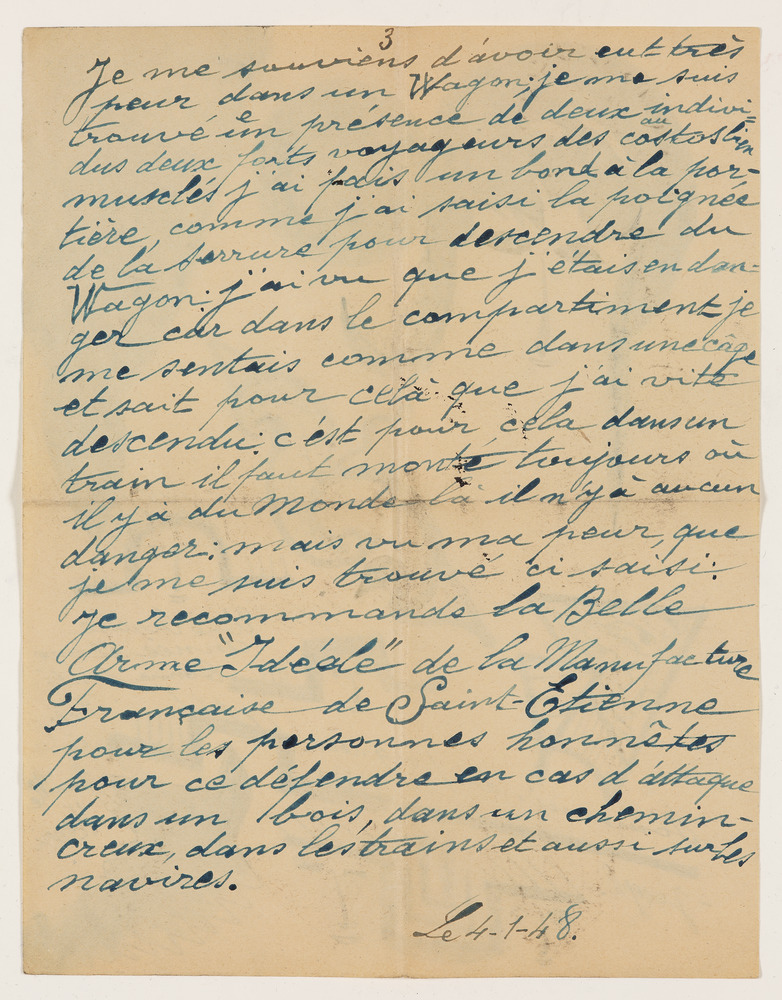 3
Je me souviens d'avoir eut très
peur dans un Wagon; je me suis
trouvé en présence de deux indivi=
dus deux forts voyageurs des costos bien
musclés j'ai fais un bond à la por-
tière, comme j'ai saisi la poignée
de la serrure pour descendre du
Wagon. j'ai vu que j'étais en dan=
ger car dans le compartiment je
me sentais comme dans une câge
et sait pour celà que j'ai vite
descendu: c'ést pour cela dans un
train il faut monté toujours où
il y à du Monde là il n'y à aucun
danger: mais vu ma peur, que
je me suis trouvé ci saisi:
Je recommande la Belle
Arme "Idéale" de la Manufacture
Française de Saint-Etienne
pour les personnes honnêtes
pour ce défendre en cas d'áttaque
dans un bois, dans un chemin-
creux, dans les trains et aussi sur les
navires.
Le 4-1-48.